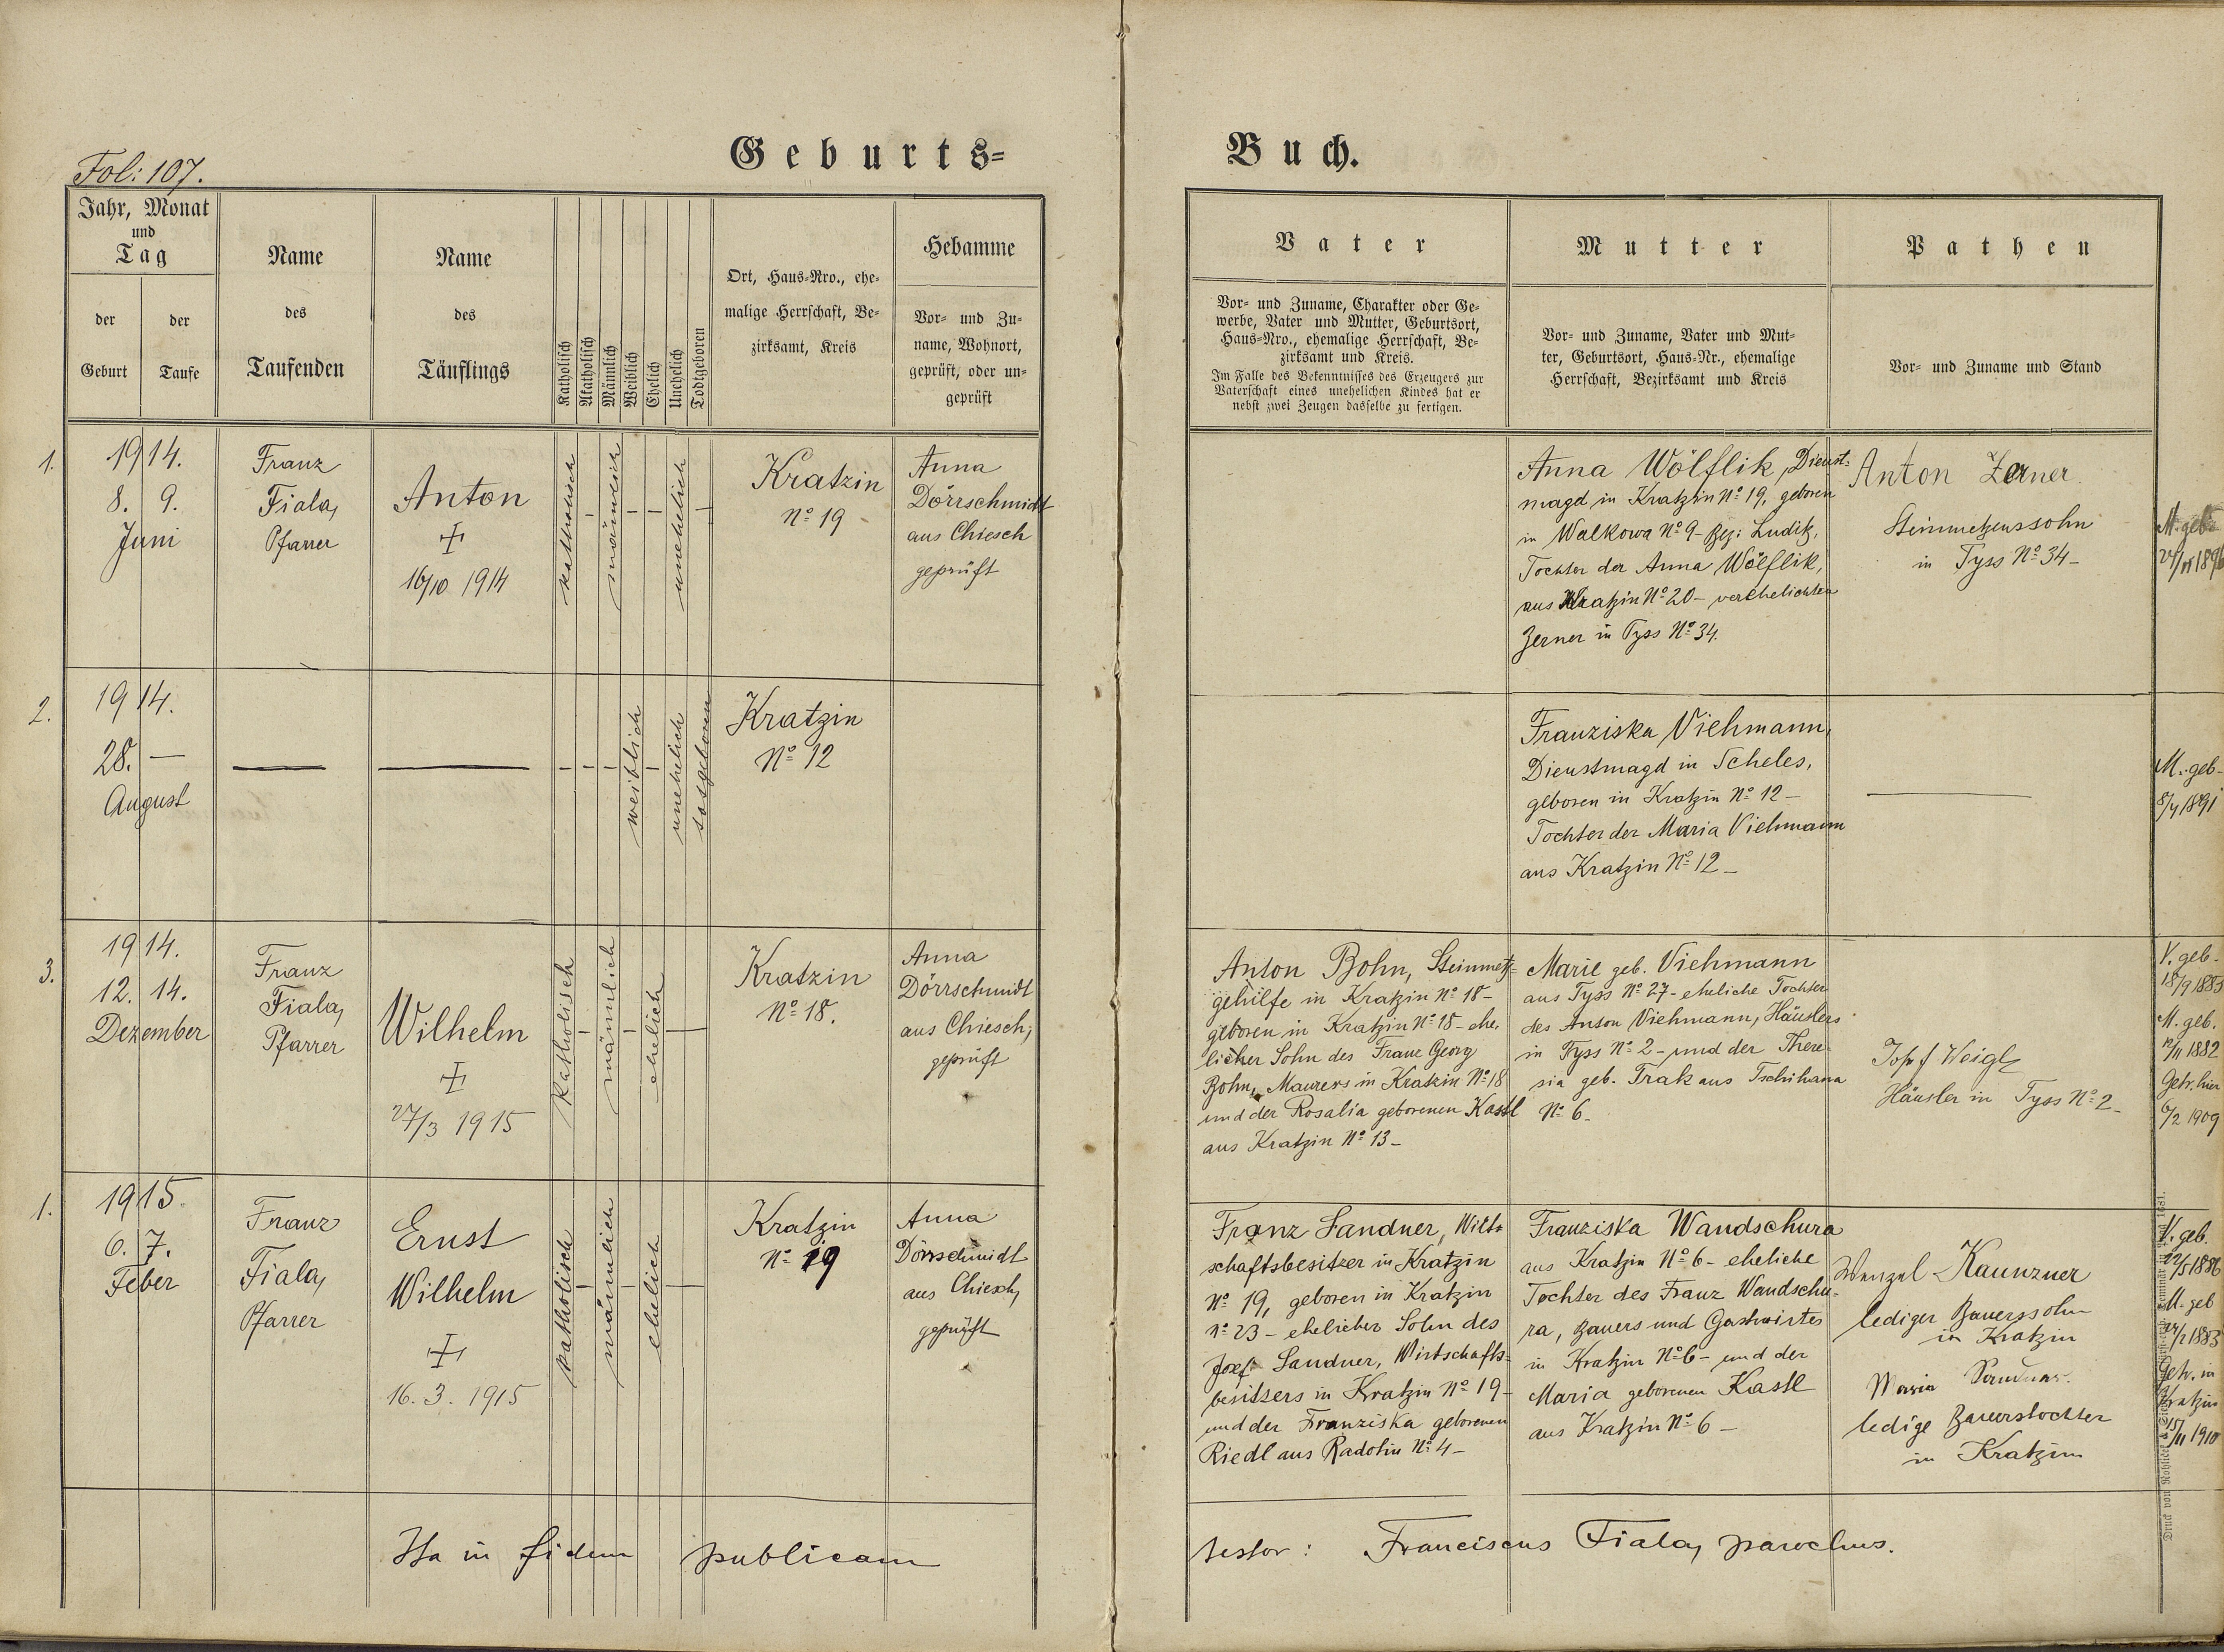 Fol: 107.
Geburts=
Buch.
Jahr, Monat
und
Tag
der
Geburt
der
Taufe
Name
des
Taufenden
Name
des
Täuflings
Katholisch
Akatholisch
Männlich
Weiblich
Ehelich
Unehelich
Todtgeboren
Ort, Haus=Nro., ehe=
malige Herrschaft, Be=
zirksamt, Kreis
Hebamme
Vor= und Zu=
name, Wohnort,
geprüft, oder un=
geprüft
Vater
Vor= und Zuname, Charakter oder Ge=
werbe, Vater und Mutter, Geburtsort,
Haus=Nro., ehemalige Herrschaft, Be=
zirksamt und Kreis.
Im Falle des Bekenntnisses des Erzeugers zur
Vaterschaft eines unehelichen Kindes hat er
nebst zwei Zeugen dasselbe zu fertigen.
Mutter
Vor= und Zuname, Vater und Mut=
ter, Geburtsort, Haus=Nr., ehemalige
Herrschaft, Bezirksamt und Kreis
Pathen
Vor= und Zuname und Stand
1.
1914.
8. 9.
Juni
Franz
Fiala,
Pfarrer
Anton
+
16/10 1914
katholisch
–
männlich
–
–
unehelich
–
Kratzin
Nº 19
Anna
Dörrschmidt
aus Chiesch
geprüft
Anna Wölflik, Dienst=
magd in Kratzin Nº 19, geboren
in Walkowa Nº 9 – Bez: Luditz,
Tochter der Anna Wölflik,
aus Kratzin Nº 20 – verehelichten
Zerner in Tyss Nº 34.
Anton Zerner
Steinmetzenssohn
in Tyss Nº 34 –
M. geb.
2.
1914.
28. —
August
—
—
–
–
–
weiblich
–
unehelich
totgeboren
Kratzin
Nº 12
Franziska Viehmann,
Dienstmagd in Scheles,
geboren in Kratzin Nº 12 –
Tochter der Maria Viehmann
aus Kratzin Nº 12 –
—
M. geb.
8/4 1891
3.
1914.
12. 14.
Dezember
Franz
Fiala,
Pfarrer
Wilhelm
+
27/3 1915
Katholisch
–
männlich
–
ehelich
—
Kratzin
Nº 18.
Anna
Dörrschmidt
aus Chiesch,
geprüft
Anton Bohn, Steinmetz=
gehilfe in Kratzin Nº 18 –
geboren in Kratzin Nº 18 – ehe,
licher Sohn des Franz Georg
Bohn, Maurers in Kratzin Nº 18
und der Rosalia geborenen Kastl
aus Kratzin Nº 13 –
Marie geb. Viehmann
aus Tyss Nº 27 – eheliche Tochter
des Anton Viehmann, Häuslers
in Tyss Nº 2 – und der There=
sia geb. Trak aus Tschihana
Nº 6 –
Josef Weigl
Häusler in Tyss Nº 2 –
V. geb.
18/9 1883
M. geb.
12/11 1882
Getr. hier
6/2 1909
1.
1915.
6. 7.
Feber
Franz
Fiala,
Pfarrer
Ernst
Wilhelm
+
16. 3. 1915
katholisch
–
männlich
–
ehelich
—
Kratzin
Nº 19
Anna
Dörrschmidt
aus Chiesch,
geprüft
Franz Sandner, Wirt=
schaftsbesitzer in Kratzin
Nº 19, geboren in Kratzin
Nº 23 – ehelicher Sohn des
Josef Sandner, Wirtschafts=
besitzers in Kratzin Nº 19 –
und der Franziska geborenen
Riedl aus Radotin Nº 4 –
Franziska Wandschura
aus Kratzin Nº 6 – eheliche
Tochter des Franz Wandschu=
ra, Bauers und Gastwirtes
in Kratzin Nº 6 – und der
Maria geborenen Kastl
aus Kratzin Nº 6 –
Wenzel Kaunzner
lediger Bauerssohn
in Kratzin
Maria Sandner
ledige Bauerstochter
in Kratzin
V. geb.
12/5 1886
M. geb
1883
Getr. in
Kratzin
15/11 1910
Ita in fidem publicam
testor: Franciscus Fiala, parochus.